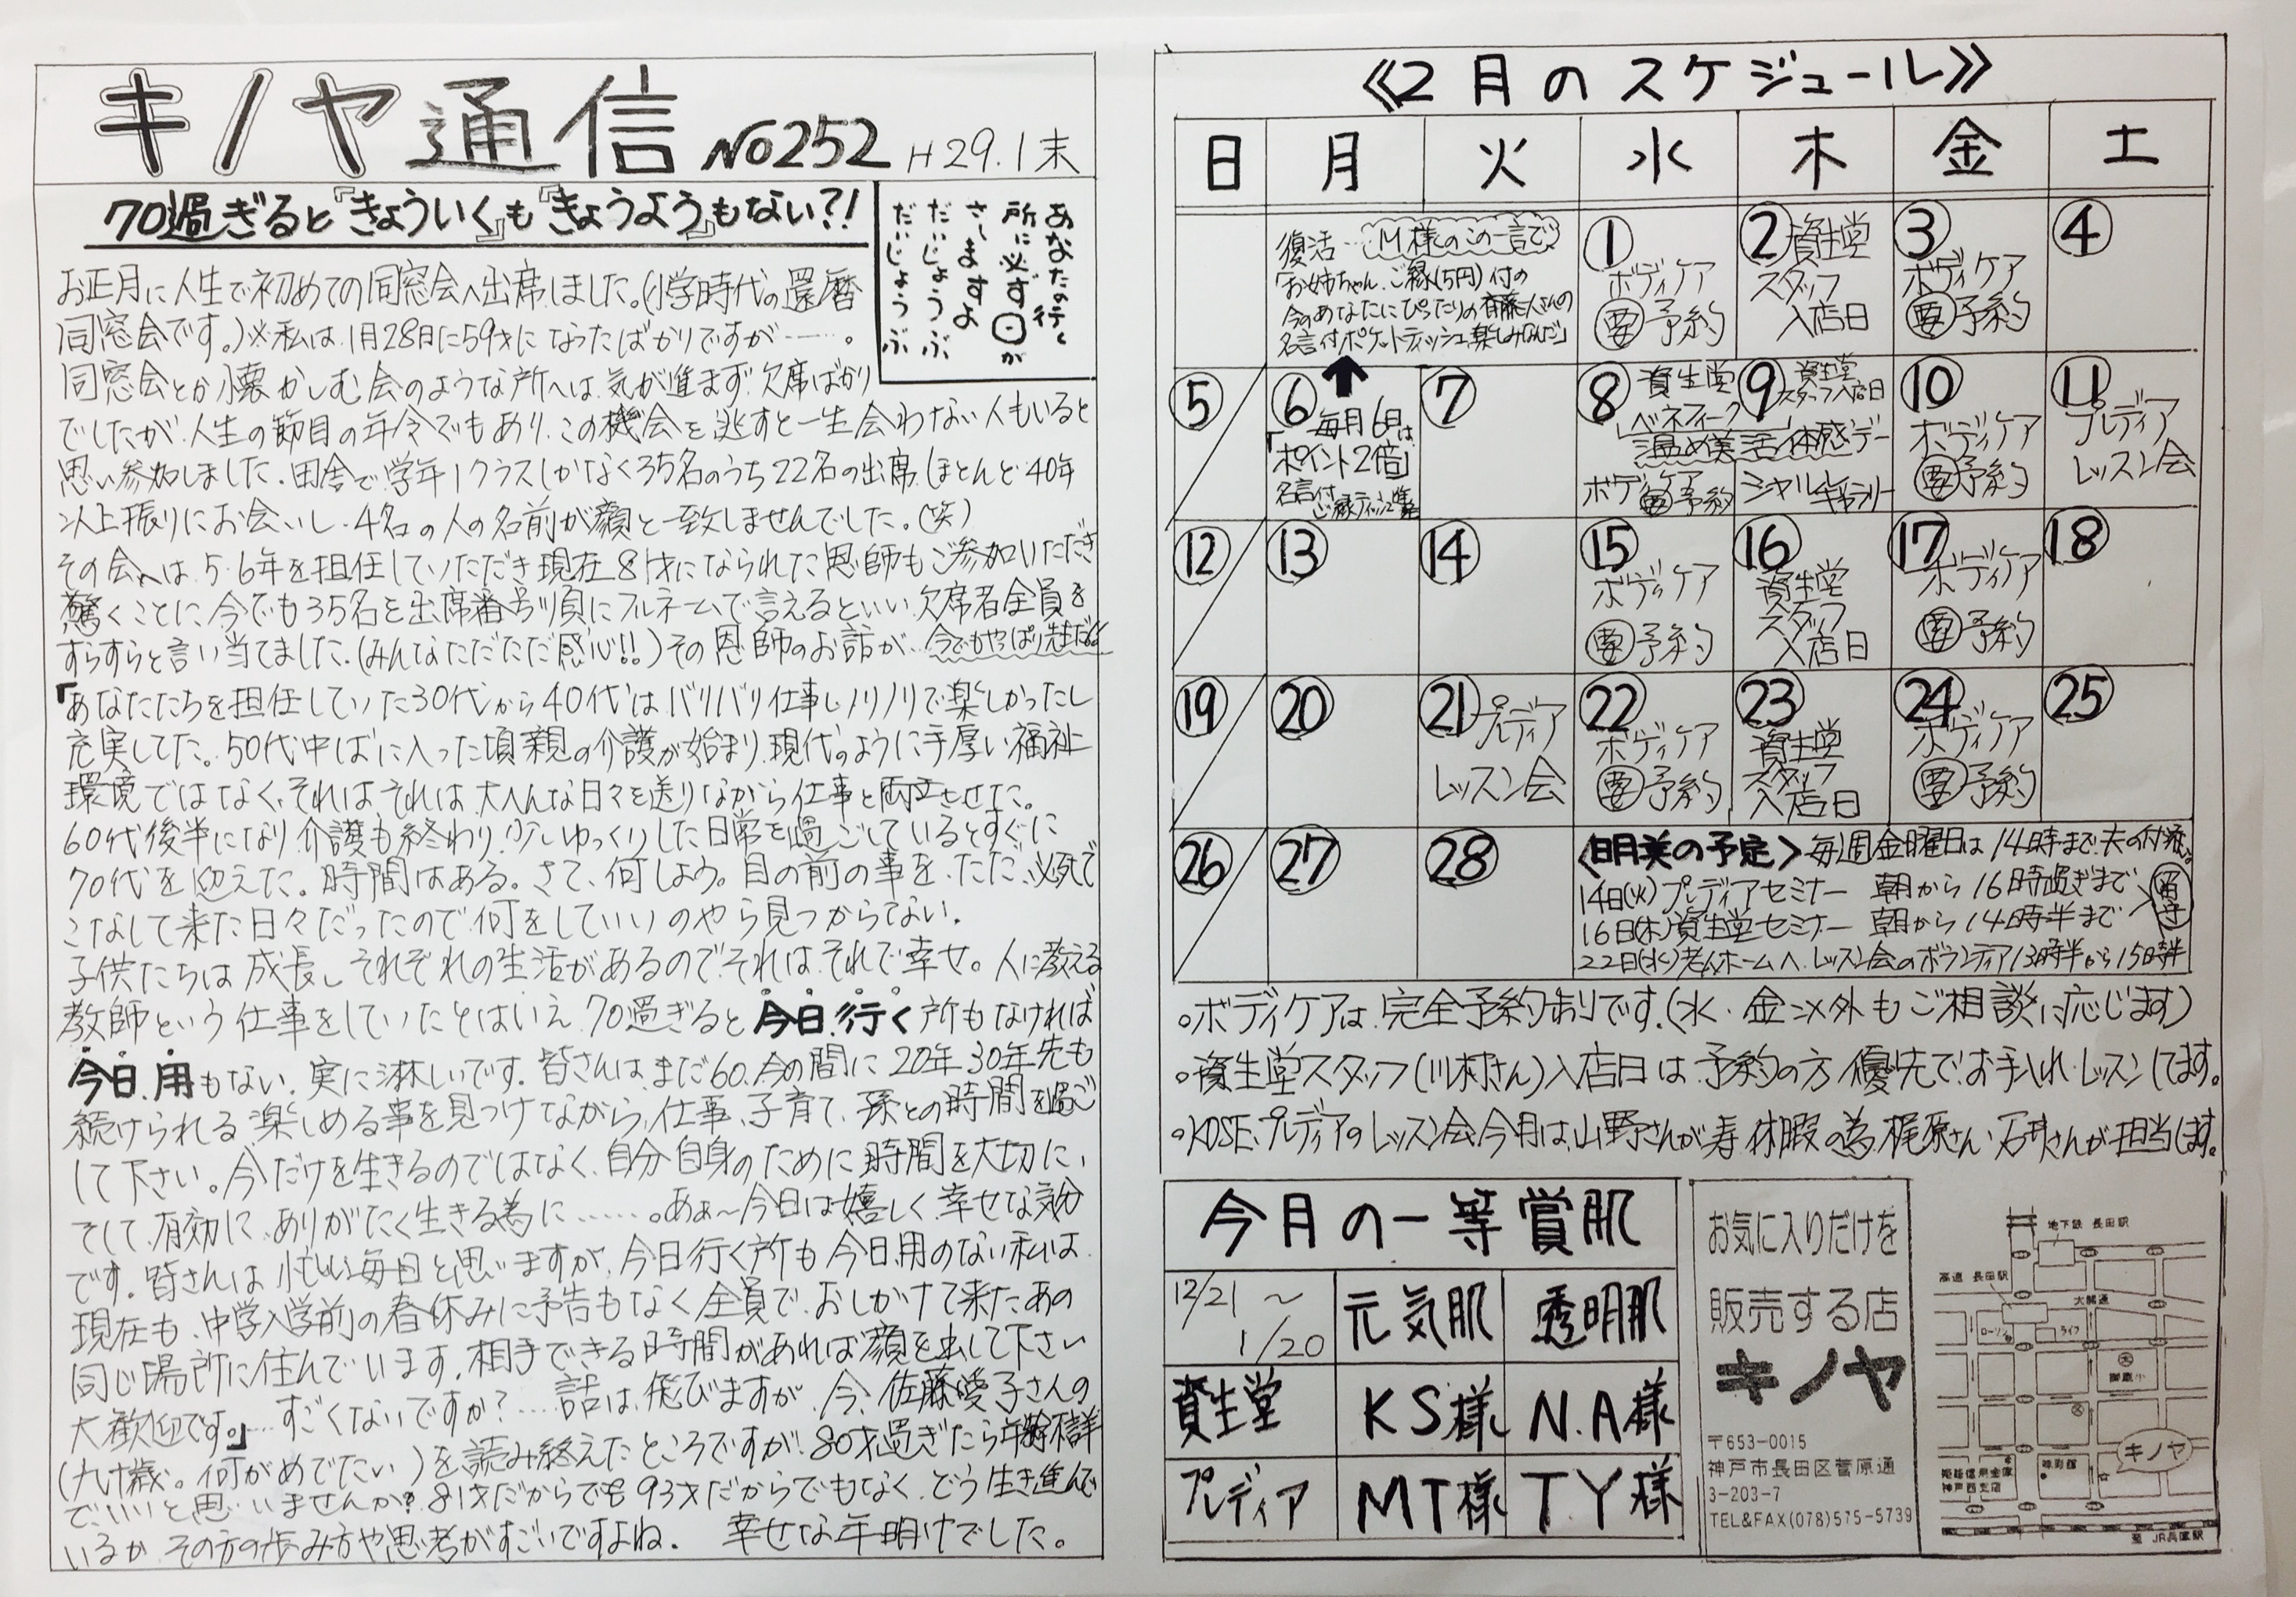 キノヤ通信 No252 H29.1末
70過ぎると『きょういく』も『きょうよう』もない?!
あなたの行く
所に必ず日が
さしますよ
だいじょうぶ
だいじょうぶ
お正月に人生で初めての同窓会へ出席しました。(小学時代の還暦
同窓会です。)※私は1月28日に59才になったばかりですが……。
同窓会とか懐かしむ会のような所へは気が進まず欠席ばかり
でしたが、人生の節目の年令でもあり、この機会を逃すと一生会わない人もいると
思い参加しました。田舎で学年1クラスしかなく35名のうち22名の出席。ほとんど40年
以上振りにお会いし、4名の人の名前が顔と一致しませんでした。(笑)
その会へは5・6年を担任していただき現在81才になられた恩師もご参加いただき
驚くことに今でも35名を出席番号順にフルネームで言えるといい欠席者全員を
すらすらと言い当てました。(みんなただただ感心!!)その恩師のお話が、今でもやっぱり先生だ!!
『あなたたちを担任していた30代から40代はバリバリ仕事しノリノリで楽しかったし
充実してた。50代中ばに入った頃親の介護が始まり、現代のように手厚い福祉
環境ではなく、それはそれは大へんな日々を送りながら仕事と両立させた。
60代後半になり介護も終わり、少しゆっくりした日常を過ごしているとすぐに
70代を迎えた。時間はある。さて、何しよう。目の前の事を、ただ、必死で
こなして来た日々だったので何をしていいのやら見つからない。
子供たちは成長しそれぞれの生活があるのでそれはそれで幸せ。人に教える
教師という仕事をしていたとはいえ70過ぎると今日行く所もなければ
今日用もない。実に淋しいです。皆さんはまだ60。今の間に20年30年先も
続けられる楽しめる事を見つけながら、仕事、子育て、孫との時間を過ご
して下さい。今だけを生きるのではなく、自分自身のために時間を大切に、
そして有効に、ありがたく生きる為に……。あぁ〜今日は嬉しく幸せな気分
です。皆さんは忙しい毎日と思いますが、今日行く所も今日用のない私は
現在も、中学入学前の春休みに予告もなく全員で、おしかけて来たあの
同じ場所に住んでいます。相手できる時間があれば顔を出して下さい
大歓迎です。』…すごくないですか?…話は飛びますが、今、佐藤愛子さんの
(九十歳。何がめでたい)を読み終えたところですが、80才過ぎたら年齢不詳
でいいと思いませんか?81才だからでも93才だからでもなく、どう生き進んで
いるか、その方の歩み方や思考がすごいですよね。 幸せな年明けでした。
《2月のスケジュール》
日 月 火 水 木 金 土
復活…M様のこの一言で
「お姉ちゃん、ご縁(5円)付の
今のあなたにぴったりの斉藤一人さんの
名言付ポケットティッシュ、楽しみなんだ」
① ボディケア 要予約
② 資生堂 スタッフ 入店日
③ ボディケア 要予約
④
⑤
⑥ 毎月6日は「ポイント2倍」
名言付
⑦
⑧ 資生堂 ベネフィーク
⑨ 資生堂 スタッフ入店日
温め美活体感デー
ボディケア 要予約
シャルレ ギャラリー
⑩ ボディケア 要予約
⑪ プレディア レッスン会
⑫
⑬
⑭
⑮ ボディケア 要予約
⑯ 資生堂 スタッフ 入店日
⑰ ボディケア 要予約
⑱
⑲
⑳
㉑ プレディア レッスン会
㉒ ボディケア 要予約
㉓ 資生堂 スタッフ 入店日
㉔ ボディケア 要予約
㉕
㉖
㉗
㉘
〈明美の予定〉毎週金曜日は14時まで夫の付添
14日(火)プレディアセミナー 朝から16時過ぎまで
16日(木)資生堂セミナー 朝から14時半まで
留守
22日(水)老人ホームへレッスン会のボランティア13時半から15時半
○ボディケアは完全予約制です。(水・金以外もご相談に応じます)
○資生堂スタッフ(川村さん)入店日は予約の方優先でお手入れ・レッスンしてます。
○KOSE、プレディアのレッスン会今月は、山野さんが寿休暇の為、梶原さん、石井さんが担当します。
今月の一等賞肌
12/21〜1/20 元気肌 透明肌
資生堂 KS様 N.A様
プレディア MT様 TY様
お気に入りだけを
販売する店
キノヤ
〒653-0015
神戸市長田区菅原通
3-203-7
TEL&FAX(078)575-5739
地下鉄 長田駅
高速 長田駅
大開通
ローソン
ライフ
御蔵小
キノヤ
姫路信用金庫
神戸西支店
至 JR兵庫駅